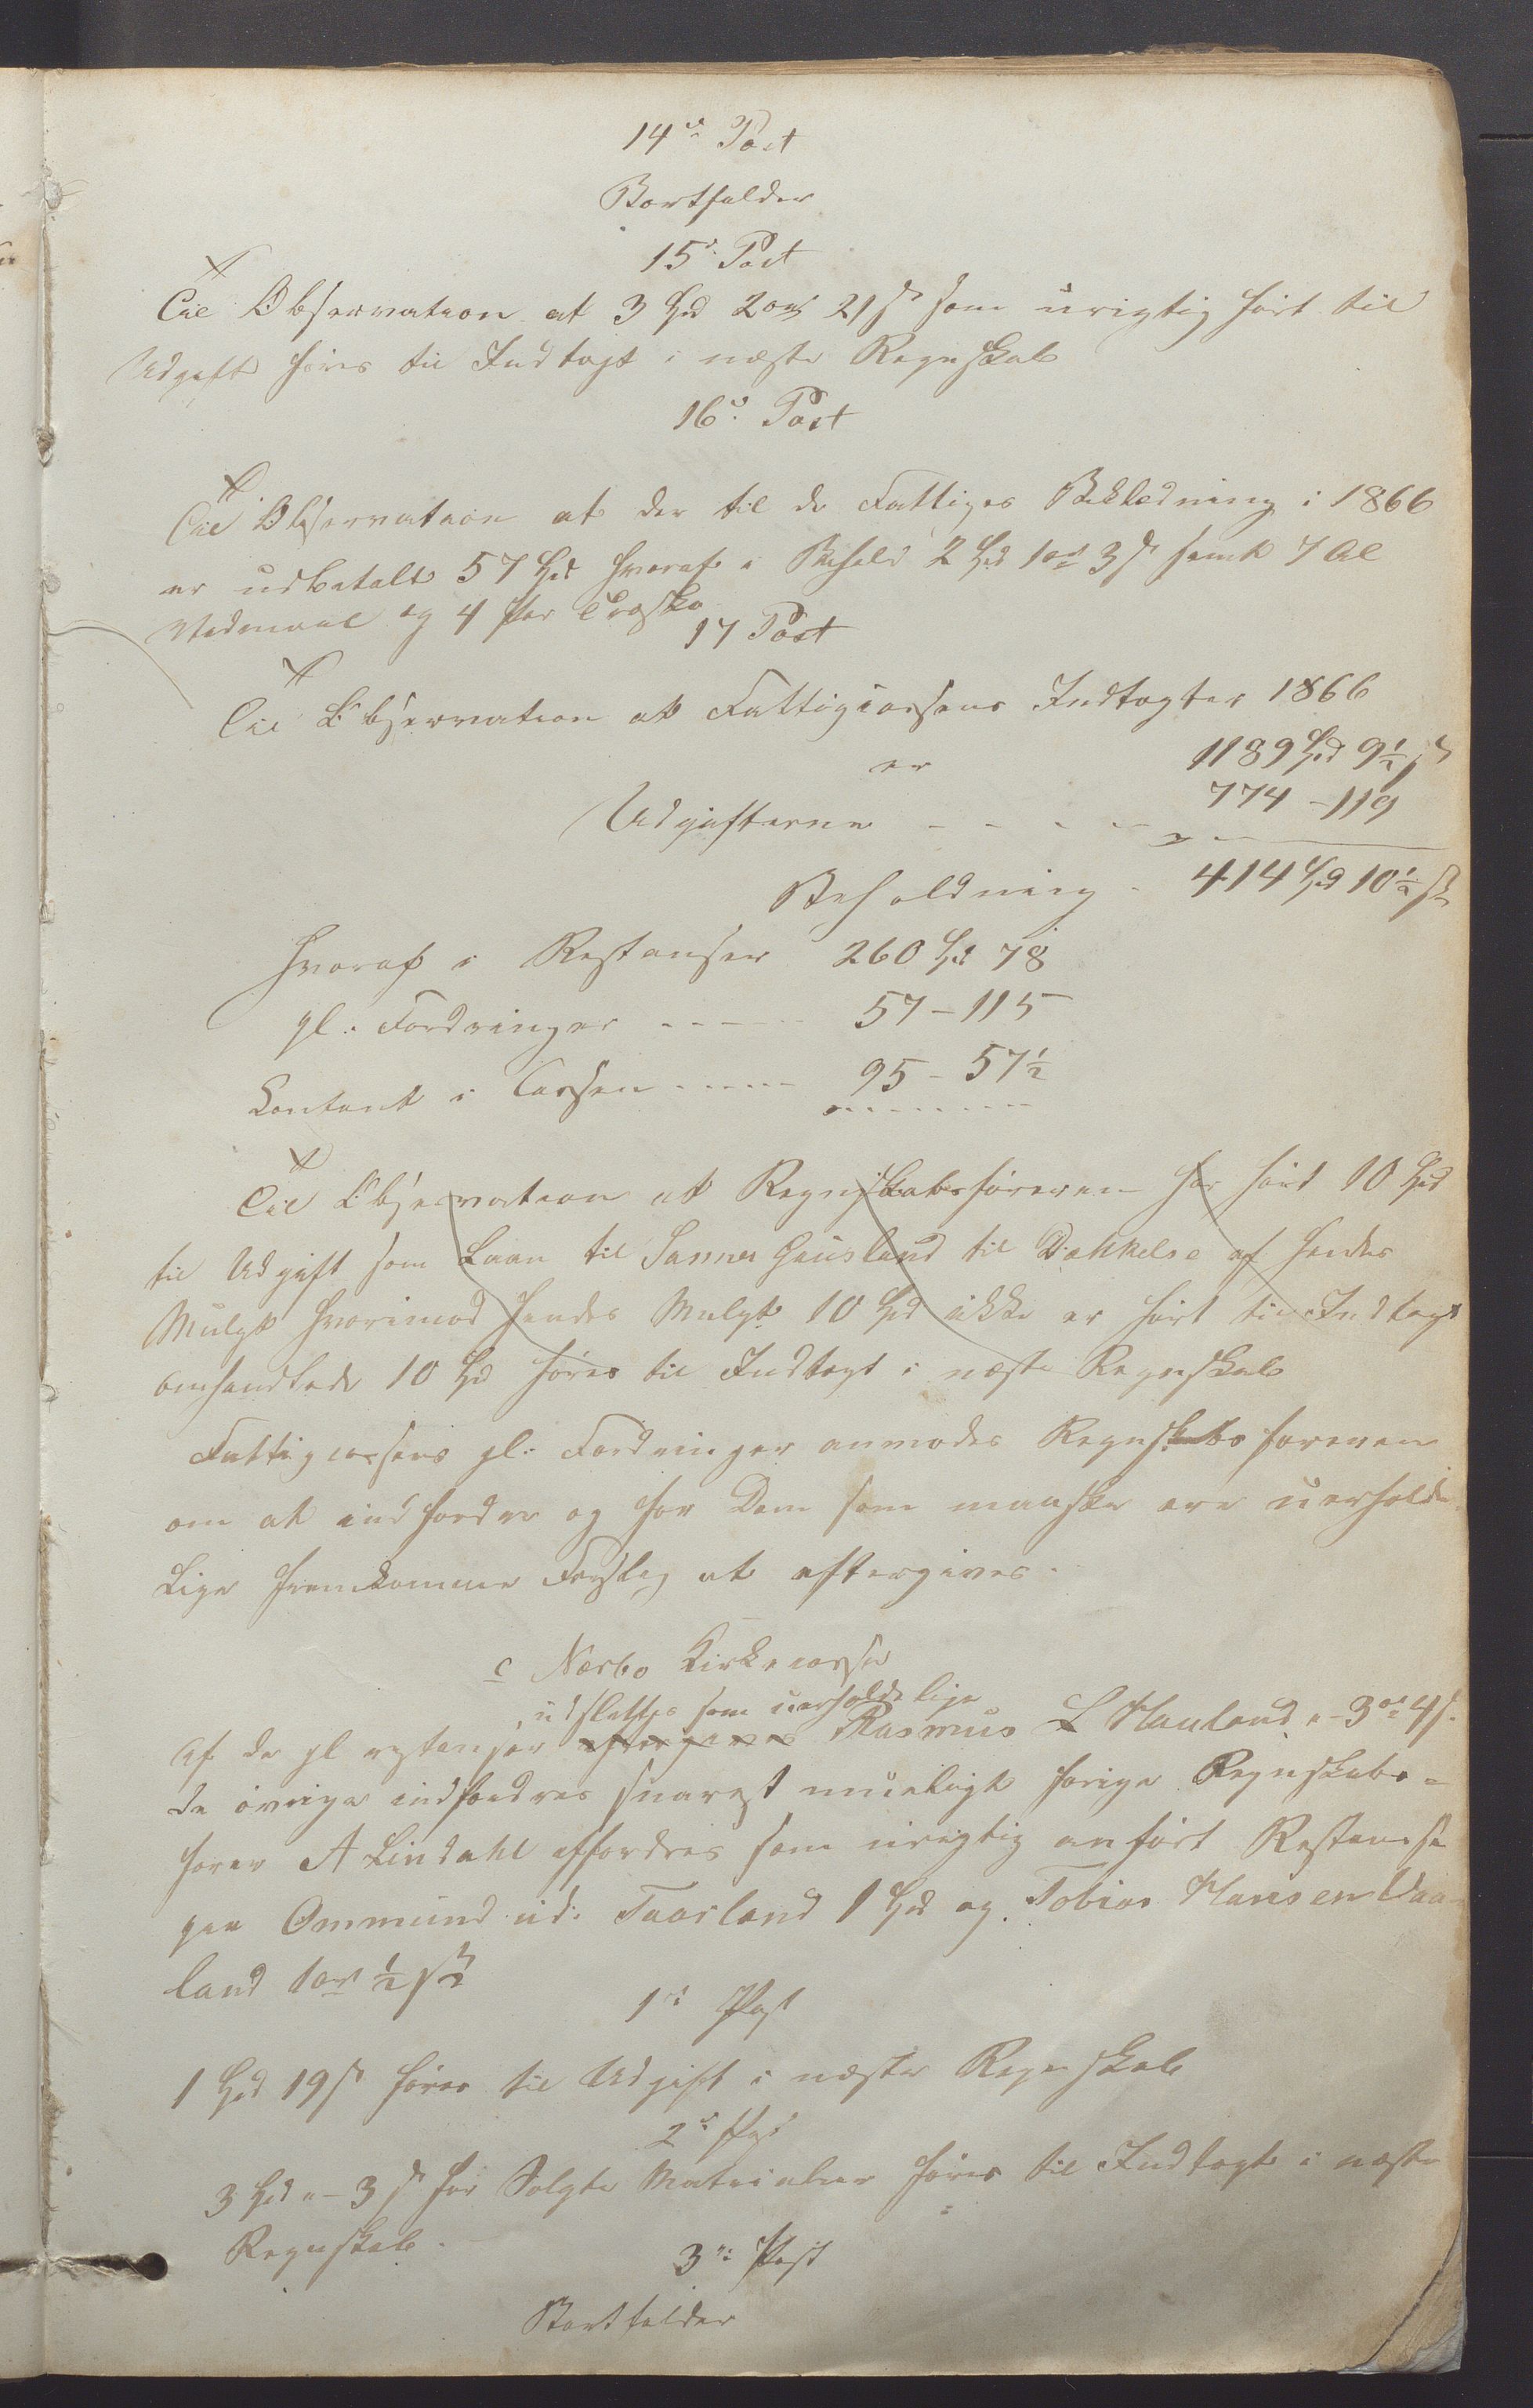 14de Post
Bortfalder
15de Post
Til Observation at 3 Spd 2 ort 21 s som urigtig ført til
Udgift føres til Indtægt i næste Regnskab
16de Post
Til Observation at der til de Fattiges Beklædning i 1866
er udbetalt 57 Spd hvoraf i Behold 2 Spd 1 ort 3 s samt 7 Al
Vadmaal og 4 Par Træsko
17 Post
Til Observation at Fattigcassens Indtægter 1866
er 1189 Spd 9½ s
Udgifterne - - - - 774 - 119
Beholdning - 414 Spd 10½ s
hvoraf i Restanser 260 Spd 78
gl. Fordringer - - - - 57 - 115
Contant i Cassen - - - - 95 - 57½
Til Observation at Regnskabsføreren har ført 10 Spd
til Udgift som Laan til Sanna Gausland til Dækkelse af hendes
Mulgt hvorimod hendes Mulgt 10 Spd ikke er ført til Indtægt
omhandlede 10 Spd føres til Indtægt i næste Regnskab
Fattigcassens gl. Fordringer anmodes Regnskabsføreren
om at indfordre og for Dem som maaske ere uerholde
lige fremkomme Forslag at eftergives.
c Nærbø Kirkecasse
udslettes som uerholdelige
Af de gl restanser eftergives Rasmus L Hauland " - 3 ort 4 s.
de øvrige indfordres snarest mueligt forige Regnskabs-
fører A Lindahl affordres som urigtig anført Restanse
paa Ommund ud: Taarland 1 Spd og Tobias Hansen Vaa
land 1 ort ½ s
1ste Post
1 Spd 19 s føres til Udgift i næste Regnskab
2de Post
3 Spd " - 3 s for Solgte Matrialier føres til Indtægt i næste
Regnskab.
3die Post
Bortfalder